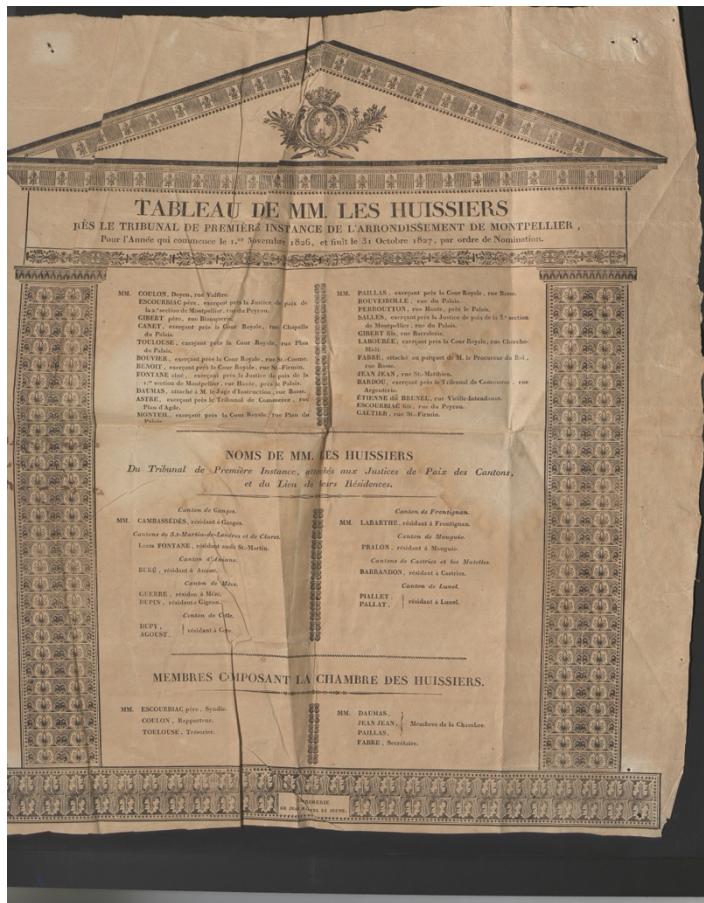 TABLEAU DE MM. LES HUISSIERS
RÈS LE TRIBUNAL DE PREMIÈRE INSTANCE DE L'ARRONDISSEMENT DE MONTPELLIER,
Pour l'Année qui commence le 1.er Novembre 1826, et finit le 31 Octobre 1827, par ordre de Nomination.
MM. COULON, Doyen, rue Valfère.
ESCOURBIAC père, exerçant près la Justice de paix de
la 2.e section de Montpellier, rue du Peyrou.
GIBERT père, rue Blanquerie.
CANET, exerçant près la Cour Royale, rue Chapelle
du Palais.
TOULOUSE, exerçant près la Cour Royale, rue Plan
du Palais.
BOUVIER, exerçant près la Cour Royale, rue St.-Cosme.
BENOIT, exerçant près la Cour Royale, rue St.-Firmin.
FONTANE aîné, exerçant près la Justice de paix de la
1.re section de Montpellier, rue Haute, près le Palais.
DAUMAS, attaché à M. le Juge d'Instruction, rue Basse.
ASTRE, exerçant près le Tribunal de Commerce, rue
Plan d'Agde.
MONTEIL, exerçant près la Cour Royale, rue Plan du
Palais.
MM. PAILLAS, exerçant près la Cour Royale, rue Basse.
ROUVEIROLLE, rue du Palais.
PERROUTTON, rue Haute, près le Palais.
SALLES, exerçant près la Justice de paix de la 3.e section
de Montpellier, rue du Palais.
GIBERT fils, rue Barralerie.
LABOURÉE, exerçant près la Cour Royale, rue Cherche-
Midi.
FABRE, attaché au parquet de M. le Procureur du Roi,
rue Basse.
JEAN JEAN, rue St.-Matthieu.
BARDOU, exerçant près le Tribunal de Commerce, rue
Argenterie.
ÉTIENNE dit BRUNEL, rue Vieille-Intendance.
ESCOURBIAC fils, rue du Peyrou.
GALTIER, rue St.-Firmin.
NOMS DE MM. LES HUISSIERS
Du Tribunal de Première Instance, attachés aux Justices de Paix des Cantons,
et du Lieu de leurs Résidences.
Canton de Ganges.
MM. CAMBASSÉDÈS, résidant à Ganges.
Cantons de St-Martin-de-Londres et de Claret.
Louis FONTANE, résidant audit St.-Martin.
Canton d'Aniane.
résidant à Aniane.
Canton de Mèze.
GUERRE, résidant à Mèze.
DUPIN, résidant à Gigean.
Canton de Cette.
DUPY,
AGOUST. résidant à Cette.
Canton de Frontignan.
MM. LABARTHE, résidant à Frontignan.
Canton de Mauguio.
PRALON, résidant à Mauguio.
Cantons de Castries et les Matelles.
BARRANDON, résidant à Castries.
Canton de Lunel.
PIALLET,
PALLAT, résidant à Lunel.
MEMBRES COMPOSANT LA CHAMBRE DES HUISSIERS.
MM. ESCOURBIAC père, Syndic.
COULON, Rapporteur.
TOULOUSE, Trésorier.
MM. DAUMAS,
JEAN JEAN, Membres de la Chambre.
PAILLAS,
FABRE, Secrétaire.
DE JEAN MARTEL LE JEUNE.